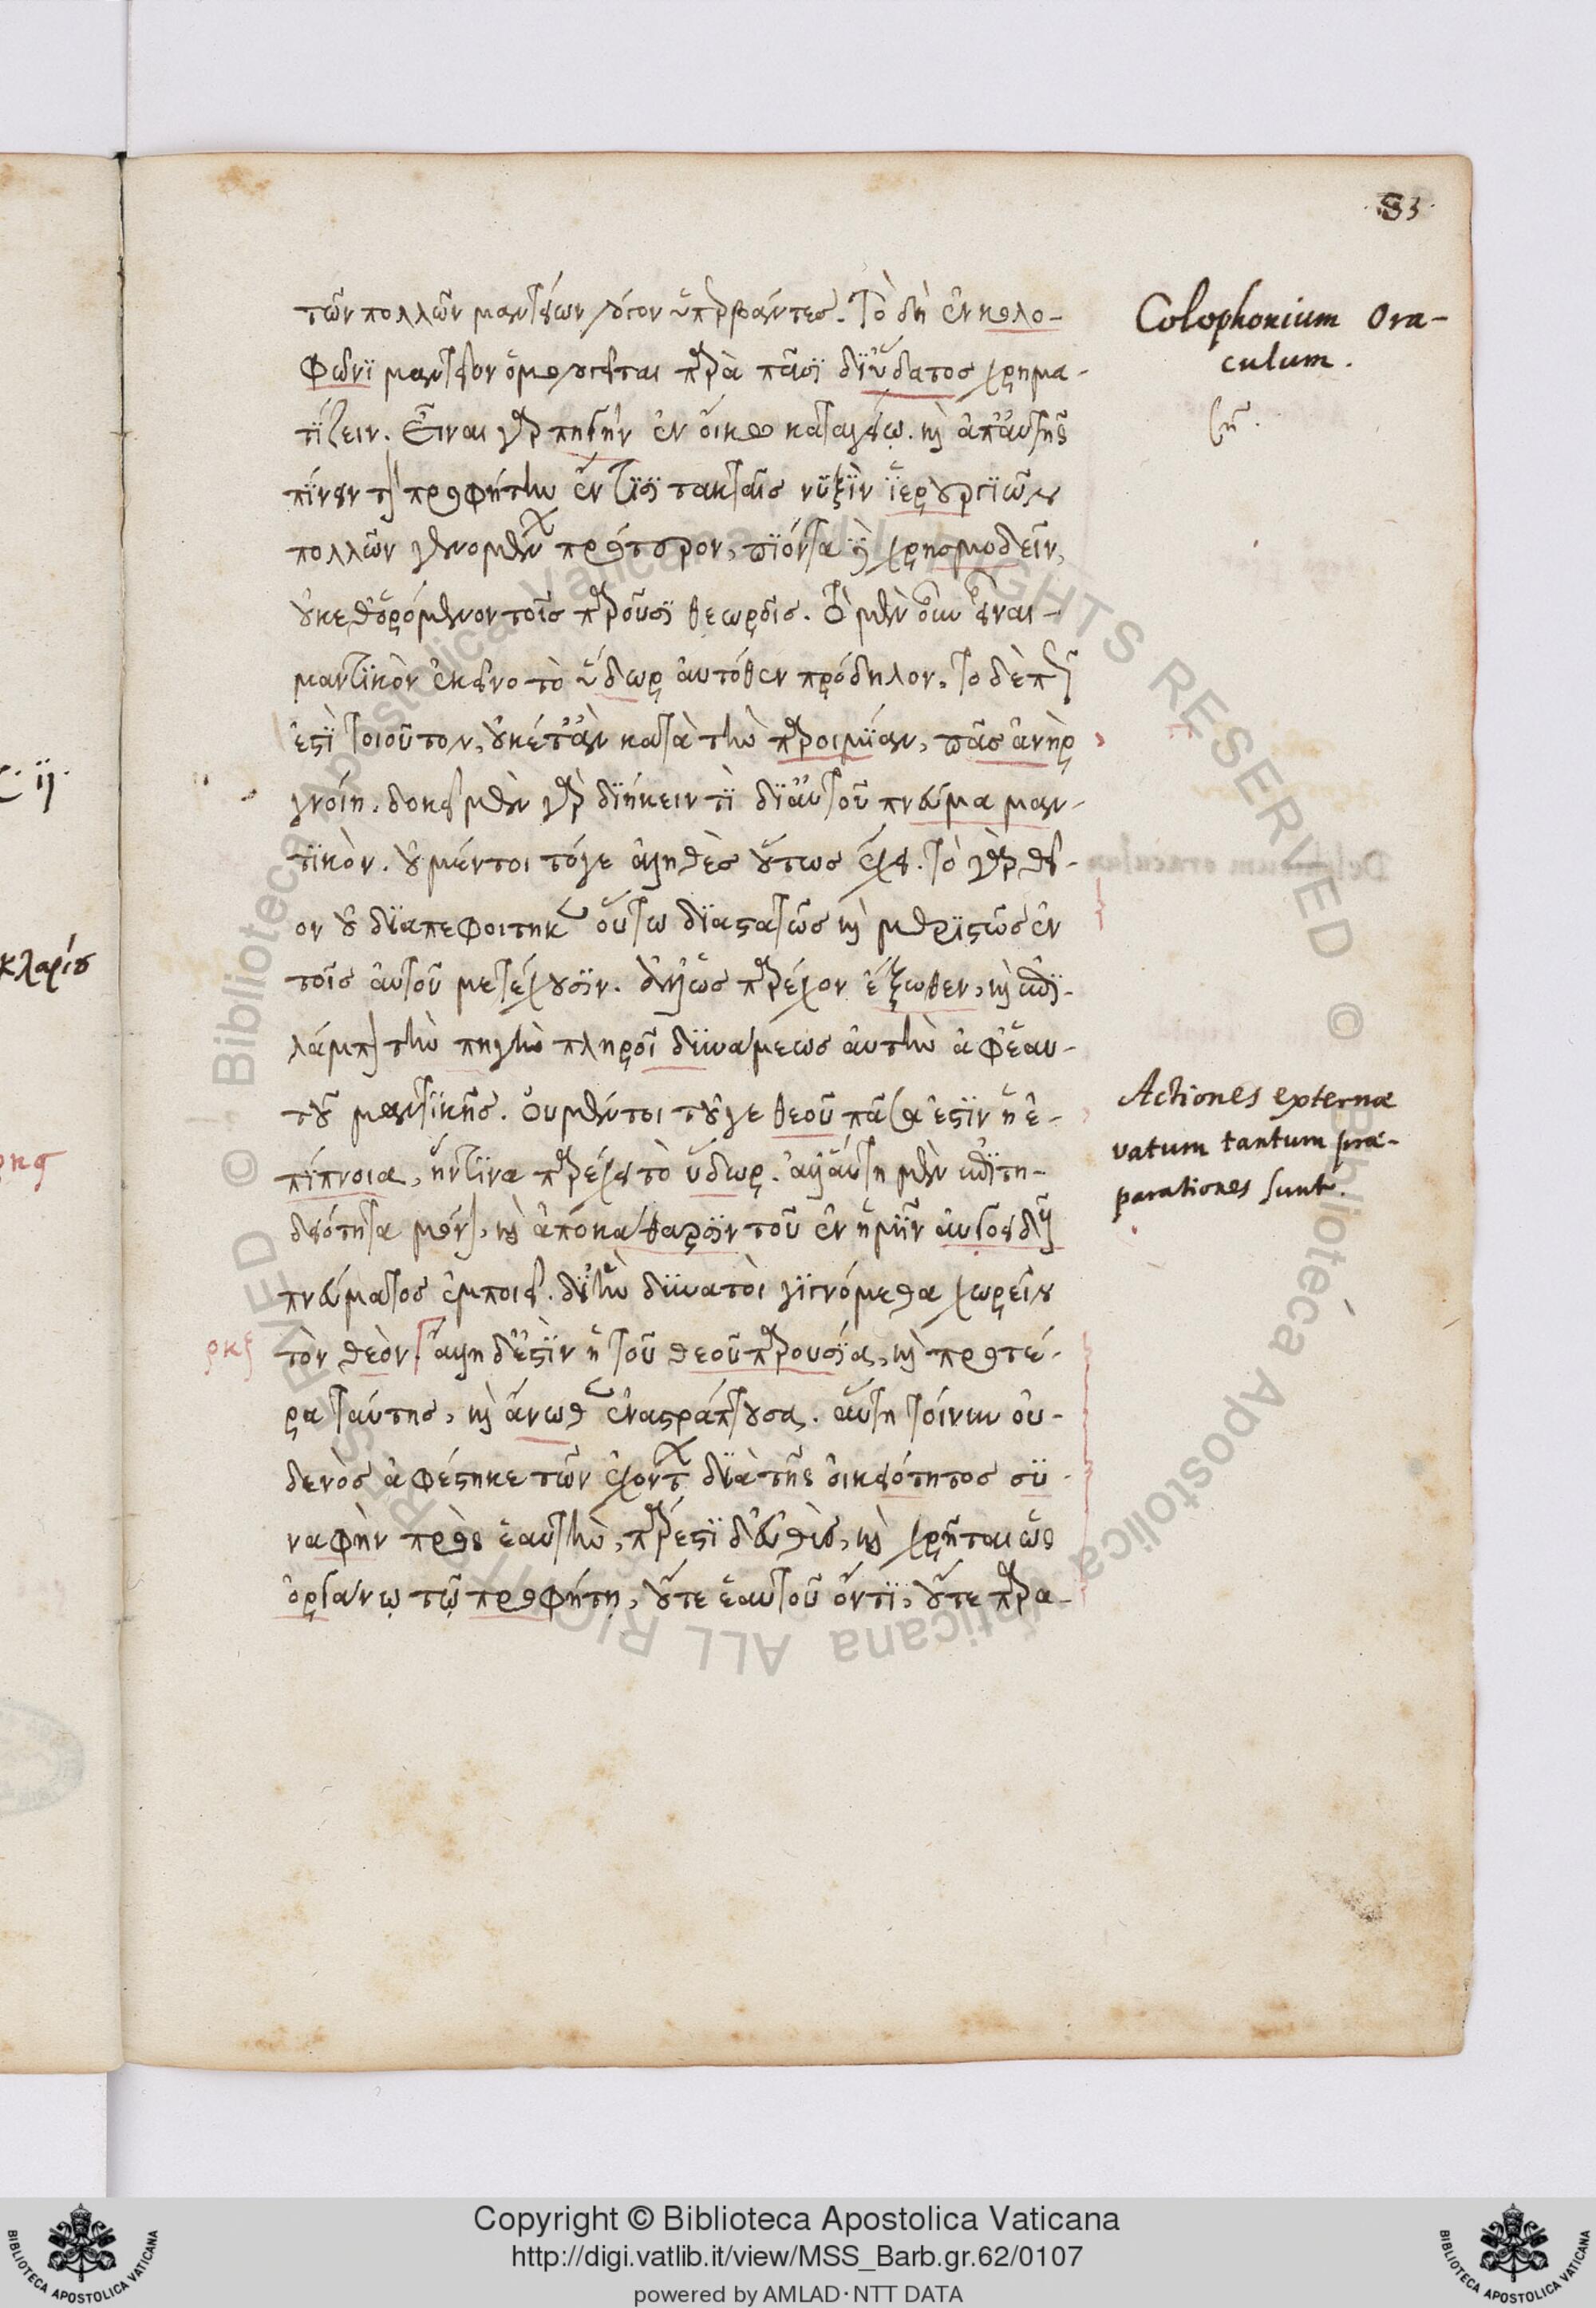 83
τῶν πολλῶν μαντείων θεῖον ὑπερβάντες. Τὸ δὴ ἐν κολο-
φῶνϊ μαντεῖον ὁμολογεῖται παρὰ πᾶσϊ δϊὕδατος χρημα-
τίζειν. Εἶναι γὰρ πηγὴν ἐν οἴκω καταγείῳ. καὶ ἀπ' αὐτῆς
πίνειν τὸν προφήτην ἔν τϊσϊ τακταῖς νυξὶν ἱερουργϊῶν
πολλῶν γενομένων πρότερον, πϊόντα δὲ χρησμωδεῖν,
οὐκέθ' ὁρώμενον τοῖς παροῦσϊ θεωροῖς. Τὸ μὲν οὖν εἶναι
μαντϊκὸν ἐκεῖνο τὸ ὕδωρ αὐτόθεν πρόδηλον, τὸ δὲ πῶς
ἐστϊ τοιοῦτον, οὐκέτ' ἂν κατὰ τὴν παροιμίαν, πᾶς ἀνὴρ
γνοίη. δοκεῖ μὲν γὰρ δϊήκειν τϊ δϊ' αὐτοῦ πνεῦμα μαν-
τϊκὸν. οὐ μέντοι τόγε ἀληθὲς οὕτως ἔχει. τὸ γὰρ θεῖ-
ον οὐ δϊαπεφοίτηκεν οὕτω δϊαστατῶς καὶ μερϊστῶς ἐν
τοῖς αὐτοῦ μετέχουσϊν. ἀλλ' ὡς παρέχον ἔξωθεν, καὶ ἐπϊ-
λάμπον τὴν πηγὴν πληροῖ δυνάμεως αὐτὴν ἀφ' ἑαυ-
τοῦ μαντϊκῆς. οὐ μέντοι τοῦ γε θεοῦ πᾶσα ἐστὶν ἡ ἐ-
πίπνοια, ἥντϊνα παρέχει τὸ ὕδωρ. ἀλλ' αὕτη μὲν ἐπϊτη-
δειότητα μόνον, καὶ ἀποκάθαρσιν τοῦ ἐν ἡμῖν αὐγοειδοῦς
πνεύματος ἐμποιεῖ. δι' ἣν δυνατοὶ γϊνόμεθα χωρεῖν
ρκζ τὸν θεὸν. ἄλλη δ' ἐστὶν ἡ τοῦ θεοῦ παρουσία, καὶ προτέ-
ρα ταύτης, καὶ ἄνωθεν ἐναστράπτουσα. αὕτη τοίνυν οὐ-
δενὸς ἀφέστηκε τῶν ἐχόντων δϊὰ τῆς οἰκειότητος συ-
ναφὴν πρὸς ἑαυτὴν, πάρεστϊ δ' εὐθὺς, καὶ χρῆται ὡς
ὀργάνῳ τῷ προφήτῃ, οὔτε ἑαυτοῦ ὄντϊ, οὔτε παρα-
Colophonium Ora-
culum.
Actiones externæ
vatum tantum præ-
parationes sunt.
κλαρίου
Copyright © Biblioteca Apostolica Vaticana
http://digi.vatlib.it/view/MSS_Barb.gr.62/0107
powered by AMLAD·NTT DATA
BIBLIOTECA APOSTOLICA VATICANA
BIBLIOTECA APOSTOLICA VATICANA